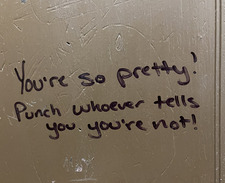 You're so pretty!
Punch whoever tells
you you're not!